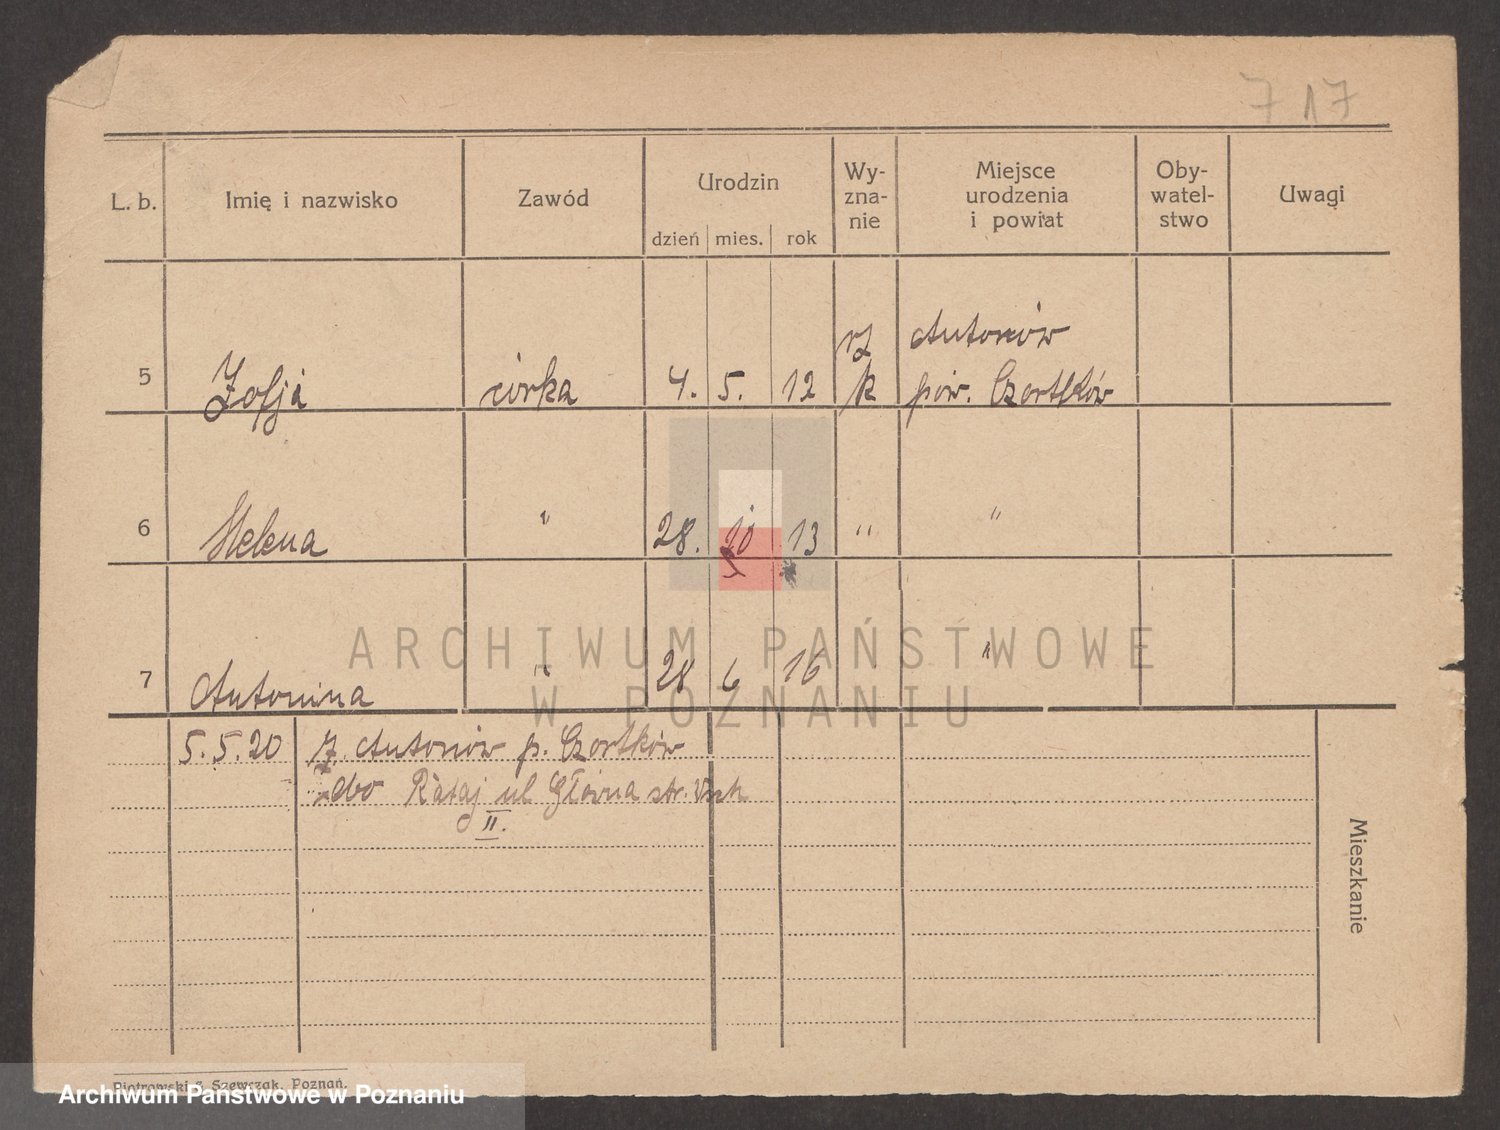 7 17
L. b. Imię i nazwisko Zawód Urodzin Wy-zna-nie Miejsce urodzenia i powiat Oby-watel-stwo Uwagi
dzień mies. rok
Antonów
5 Zofja córka 4. 5. 12 rz k pow. Czortków
6 Helena " 28. 10 13 " "
7 Antonina " 28 6 16 "
5.5.20 z Antonów p. Czortków
dbo Rataj ul Główna str.
II.
Mieszkanie
Piotrowski & Szewczak, Poznań.
ARCHIWUM PAŃSTWOWE
W POZNANIU
Archiwum Państwowe w Poznaniu